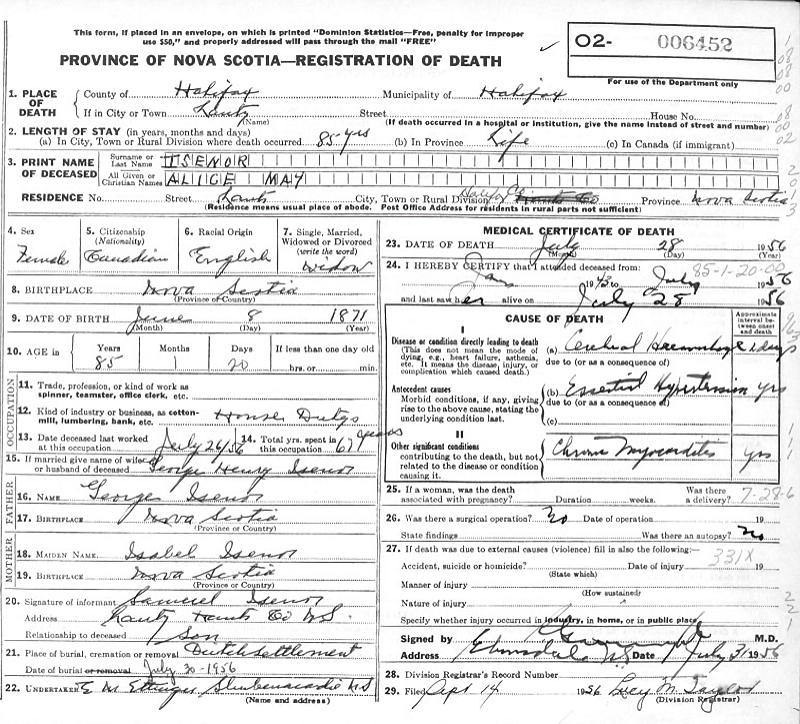 This form, if placed in an envelope, on which is printed "Dominion Statistics—Free, penalty for improper
use $50," and properly addressed will pass through the mail "FREE"
PROVINCE OF NOVA SCOTIA—REGISTRATION OF DEATH
O2- 006452
For use of the Department only
1. PLACE OF DEATH County of Halifax Municipality of Halifax
If in City or Town Lantz Street House No.
(Name) (If death occurred in a hospital or institution, give the name instead of street and number)
2. LENGTH OF STAY (in years, months and days)
(a) In City, Town or Rural Division where death occurred 85 yrs (b) In Province Life (c) In Canada (if immigrant)
3. PRINT NAME OF DECEASED Surname or Last Name ISENOR
All Given or Christian Names ALICE MAY
RESIDENCE No. Street Lantz City, Town or Rural Division Halifax Co Hants Co Province Nova Scotia
(Residence means usual place of abode. Post Office Address for residents in rural parts not sufficient)
4. Sex Female
5. Citizenship (Nationality) Canadian
6. Racial Origin English
7. Single, Married, Widowed or Divorced (write the word) Widow
8. BIRTHPLACE Nova Scotia
(Province or Country)
9. DATE OF BIRTH June 8 1871
(Month) (Day) (Year)
10. AGE in Years 85 Months 1 Days 20 If less than one day old hrs. or min.
OCCUPATION
11. Trade, profession, or kind of work as spinner, teamster, office clerk, etc.
12. Kind of industry or business, as cotton-mill, lumbering, bank, etc. House Dutys
13. Date deceased last worked at this occupation July 26/56 14. Total yrs. spent in this occupation 67 years
15. If married give name of wife or husband of deceased George Henry Isenor
FATHER
16. NAME George Isenor
17. BIRTHPLACE Nova Scotia
(Province or Country)
MOTHER
18. MAIDEN NAME Isabel Isenor
19. BIRTHPLACE Nova Scotia
(Province or Country)
20. Signature of informant Samuel Isenor
Address Lantz Hants Co N.S
Relationship to deceased son
21. Place of burial, cremation or removal Dutch Settlement
Date of burial or removal July 30-1956
22. UNDERTAKER E M Ettinger Shubenacadie NS
(Name and address)
MEDICAL CERTIFICATE OF DEATH
23. DATE OF DEATH July 28 1956
(Month) (Day) (Year)
24. I HEREBY CERTIFY that I attended deceased from: 85-1-20-00
Jan 1943 to July 1956
and last saw her alive on July 28 1956
CAUSE OF DEATH
Approximate interval between onset and death
I
Disease or condition directly leading to death
(This does not mean the mode of dying, e.g., heart failure, asthenia, etc. It means the disease, injury, or complication which caused death.)
(a) Cerebral Haemorrhage days
due to (or as a consequence of)
Antecedent causes
Morbid conditions, if any, giving rise to the above cause, stating the underlying condition last.
(b) Essential Hypertension yrs
due to (or as a consequence of)
(c)
II
Other significant conditions
contributing to the death, but not related to the disease or condition causing it.
Chronic Myocarditis yrs
25. If a woman, was the death associated with pregnancy? Duration weeks. Was there a delivery? 7-28-6
26. Was there a surgical operation? no Date of operation 19
State findings Was there an autopsy? no
27. If death was due to external causes (violence) fill in also the following:— 331X
Accident, suicide or homicide? Date of injury 19
(State which)
Manner of injury
(How sustained)
Nature of injury
Specify whether injury occurred in industry, in home, or in public place
Signed by M.D.
Address Elmsdale N.S. Date July 31 1956
28. Division Registrar's Record Number
29. Filed Sept 14 1956 Lucy M. Taylor
(Division Registrar)